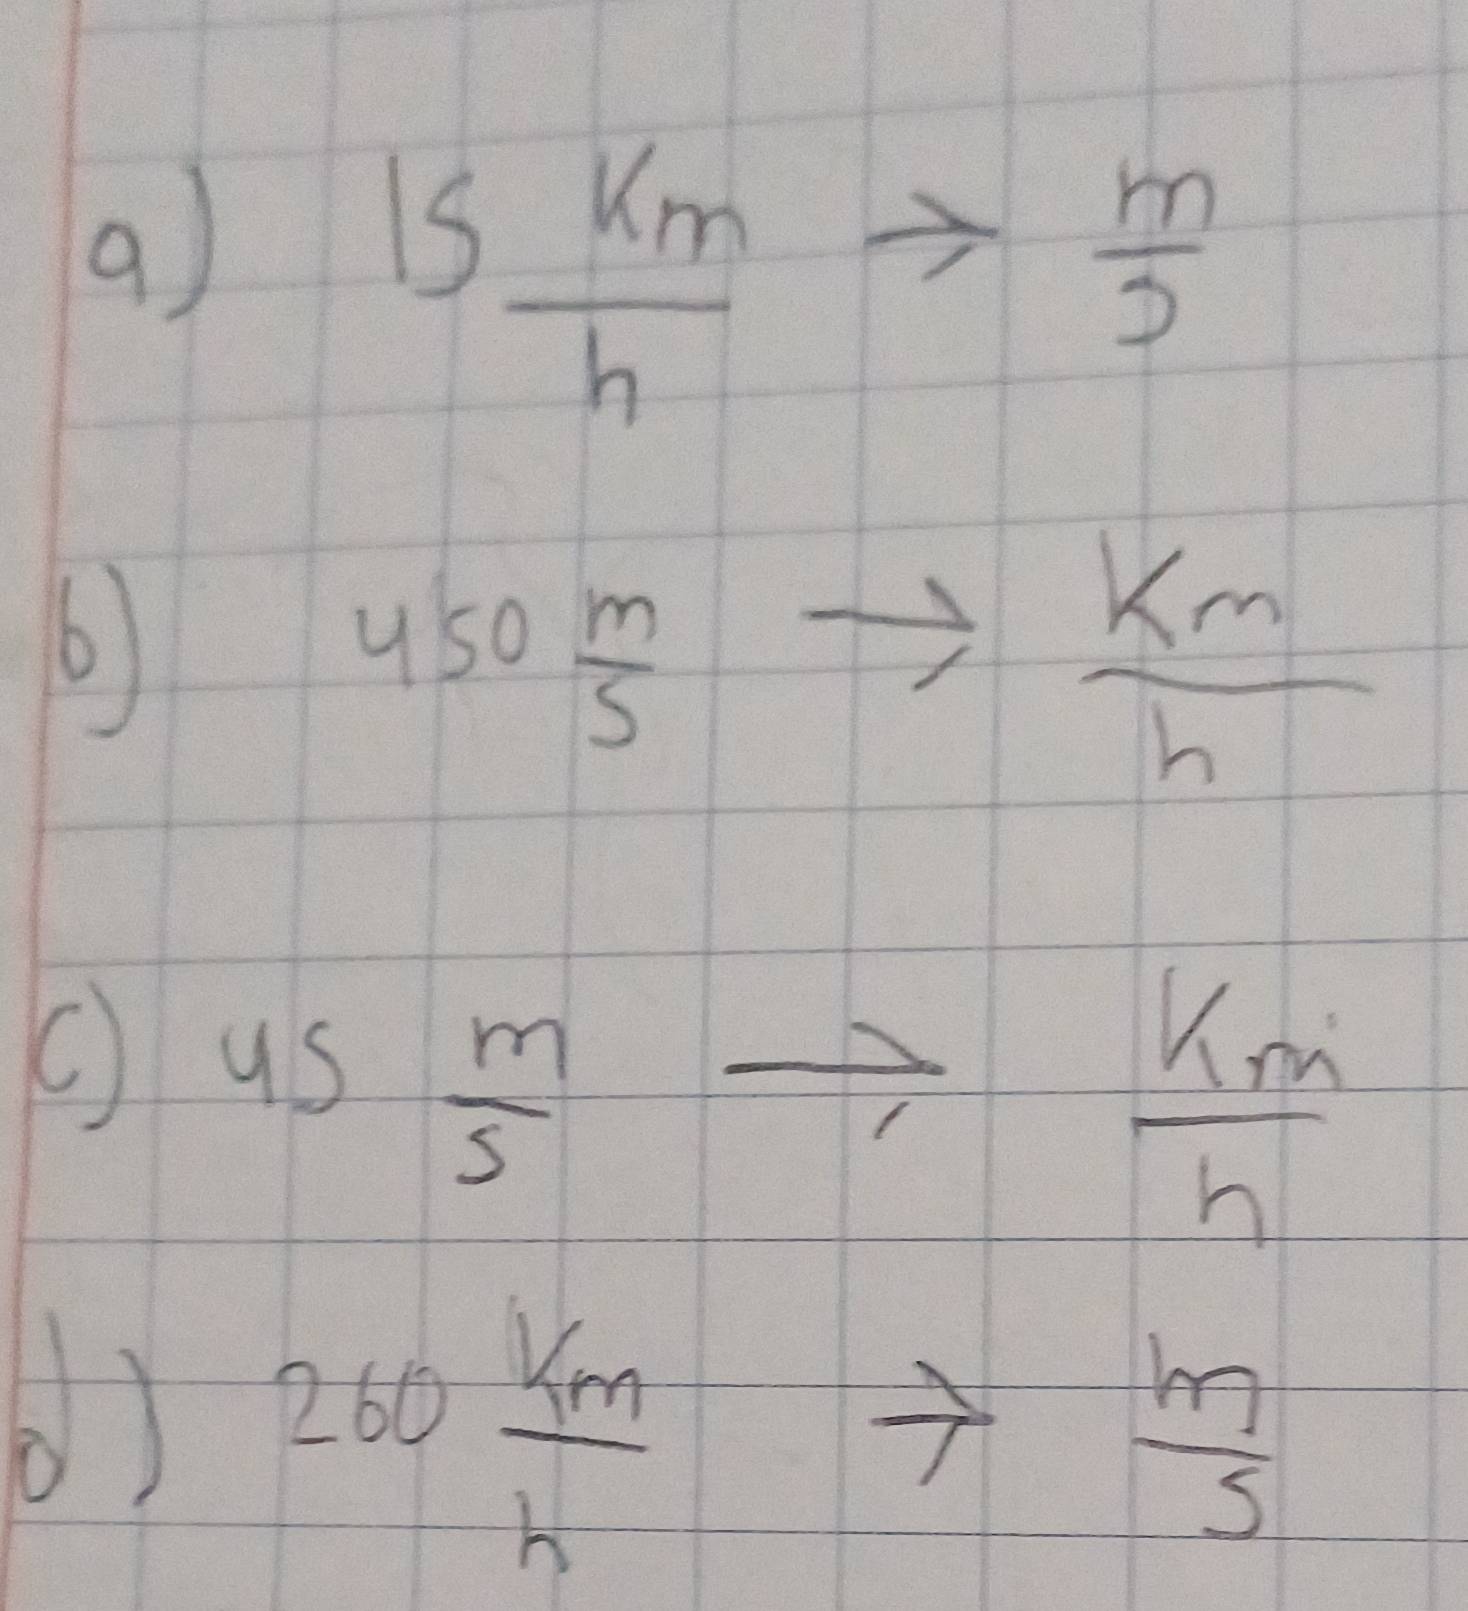 a) 15 Km/h → m/s
b) 450 m/s → Km/h
c) 45 m/s → Km/h
d) 260 Km/h → m/s